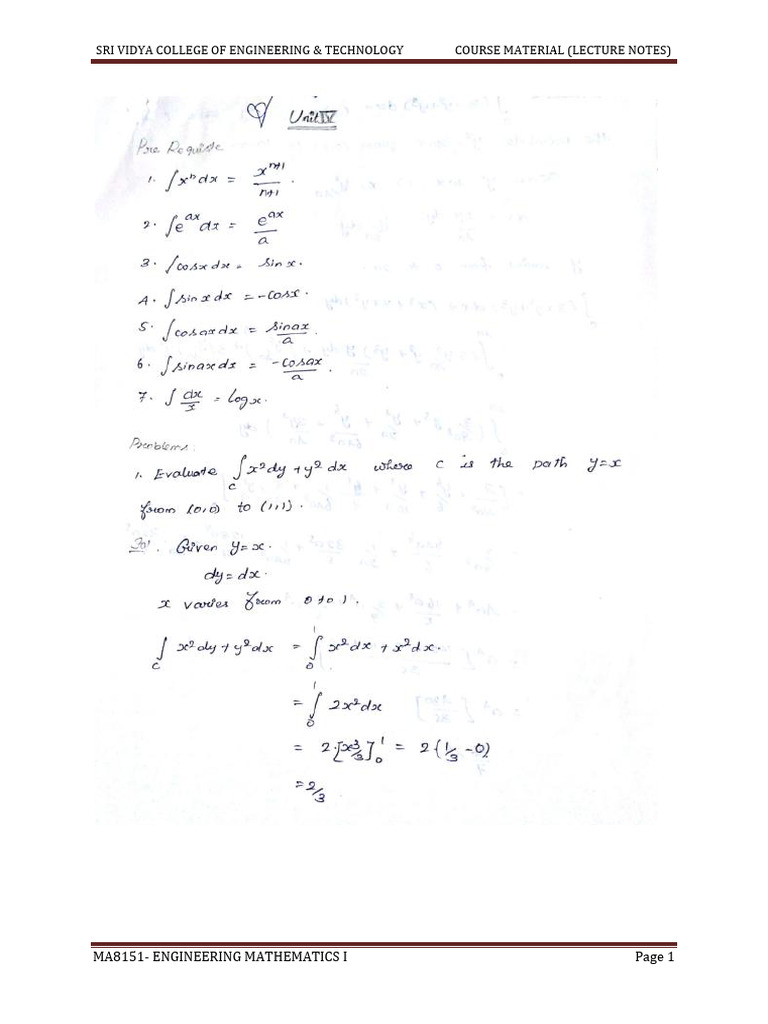 SRI VIDYA COLLEGE OF ENGINEERING & TECHNOLOGY COURSE MATERIAL (LECTURE NOTES)
Unit IV
Pre Requiste
1. ∫x^n dx = x^(n+1)/(n+1) .
2. ∫e^(ax) dx = e^(ax)/a
3. ∫cosx dx = sinx.
4. ∫sinx dx = -cosx.
5. ∫cosax dx = sinax/a .
6. ∫sinax dx = -cosax/a .
7. ∫ dx/x = logx.
Problems:
1. Evaluate ∫_C x²dy + y² dx where c is the path y=x
from (0,0) to (1,1) .
Sol. Given y=x.
dy = dx.
x varies from 0 to 1.
∫_C x²dy + y²dx = ∫_0^1 x²dx + x²dx.
= ∫_0^1 2x²dx
= 2·[x³/3]_0^1 = 2(1/3 - 0)
= 2/3
MA8151- ENGINEERING MATHEMATICS I Page 1